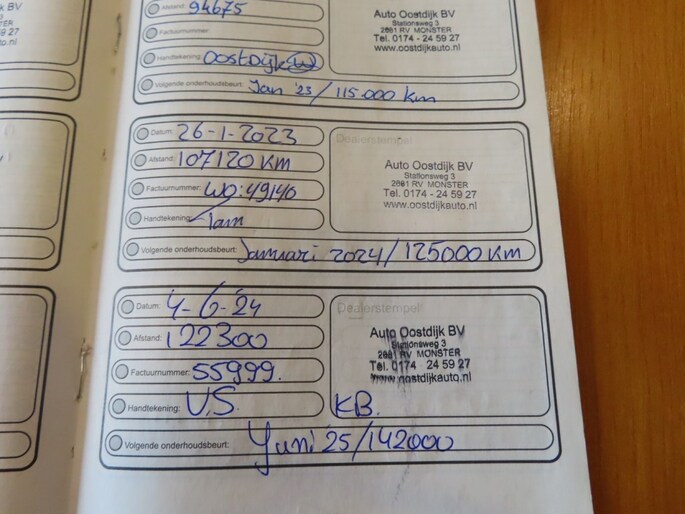 Afstand: 94675
Factuurnummer:
Handtekening: OOSTDIJK
Auto Oostdijk BV
Stationsweg 3
2681 RV MONSTER
Tel. 0174 - 24 59 27
www.oostdijkauto.nl
Volgende onderhoudsbeurt: Jan '23 / 115.000 km
Datum: 26-1-2023
Afstand: 107120 KM
Factuurnummer: WO:49140
Handtekening:
Dealerstempel
Auto Oostdijk BV
Stationsweg 3
2681 RV MONSTER
Tel. 0174 - 24 59 27
www.oostdijkauto.nl
Volgende onderhoudsbeurt: Januari 2024 / 125000 KM
Datum: 4-6-24
Afstand: 122300
Factuurnummer: 55999.
Handtekening: V.S. KB.
Dealerstempel
Auto Oostdijk BV
Stationsweg 3
2681 RV MONSTER
Tel. 0174 24 59 27
www.oostdijkauto.nl
Volgende onderhoudsbeurt: Yuni '25 / 142000